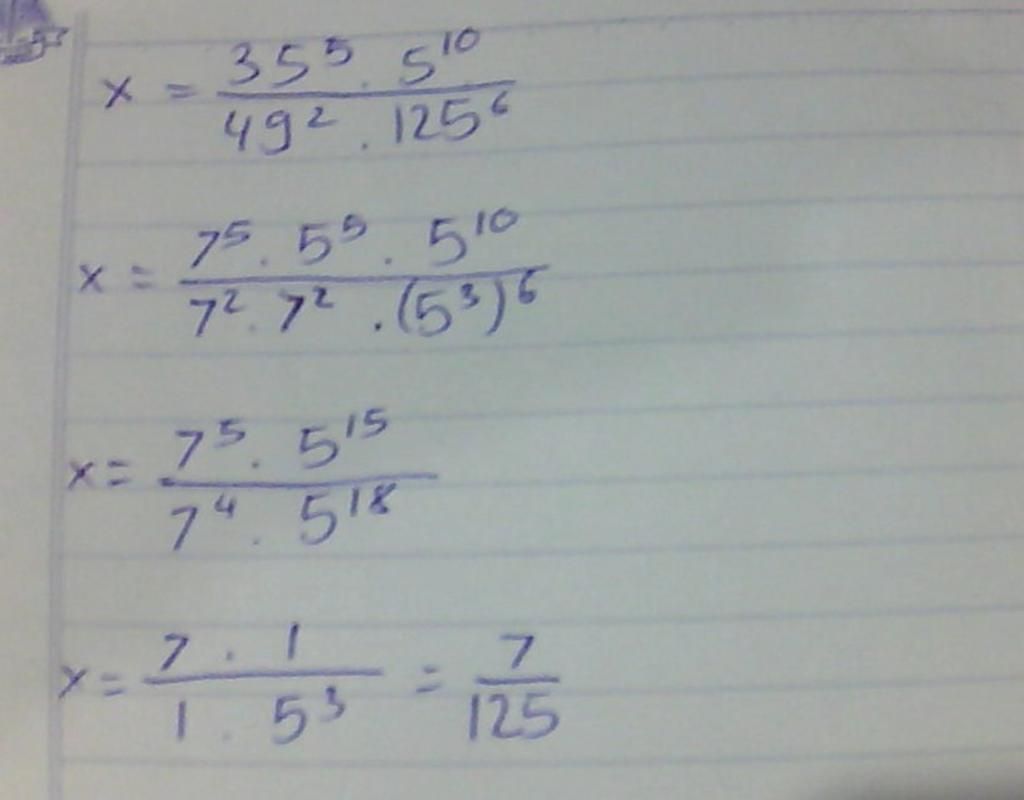 x = 35⁵ . 5¹⁰ / 49² . 125⁶
x = 7⁵ . 5⁵ . 5¹⁰ / 7² . 7² . (5³)⁶
x = 7⁵ . 5¹⁵ / 7⁴ . 5¹⁸
x = 7 . 1 / 1 . 5³ = 7 / 125